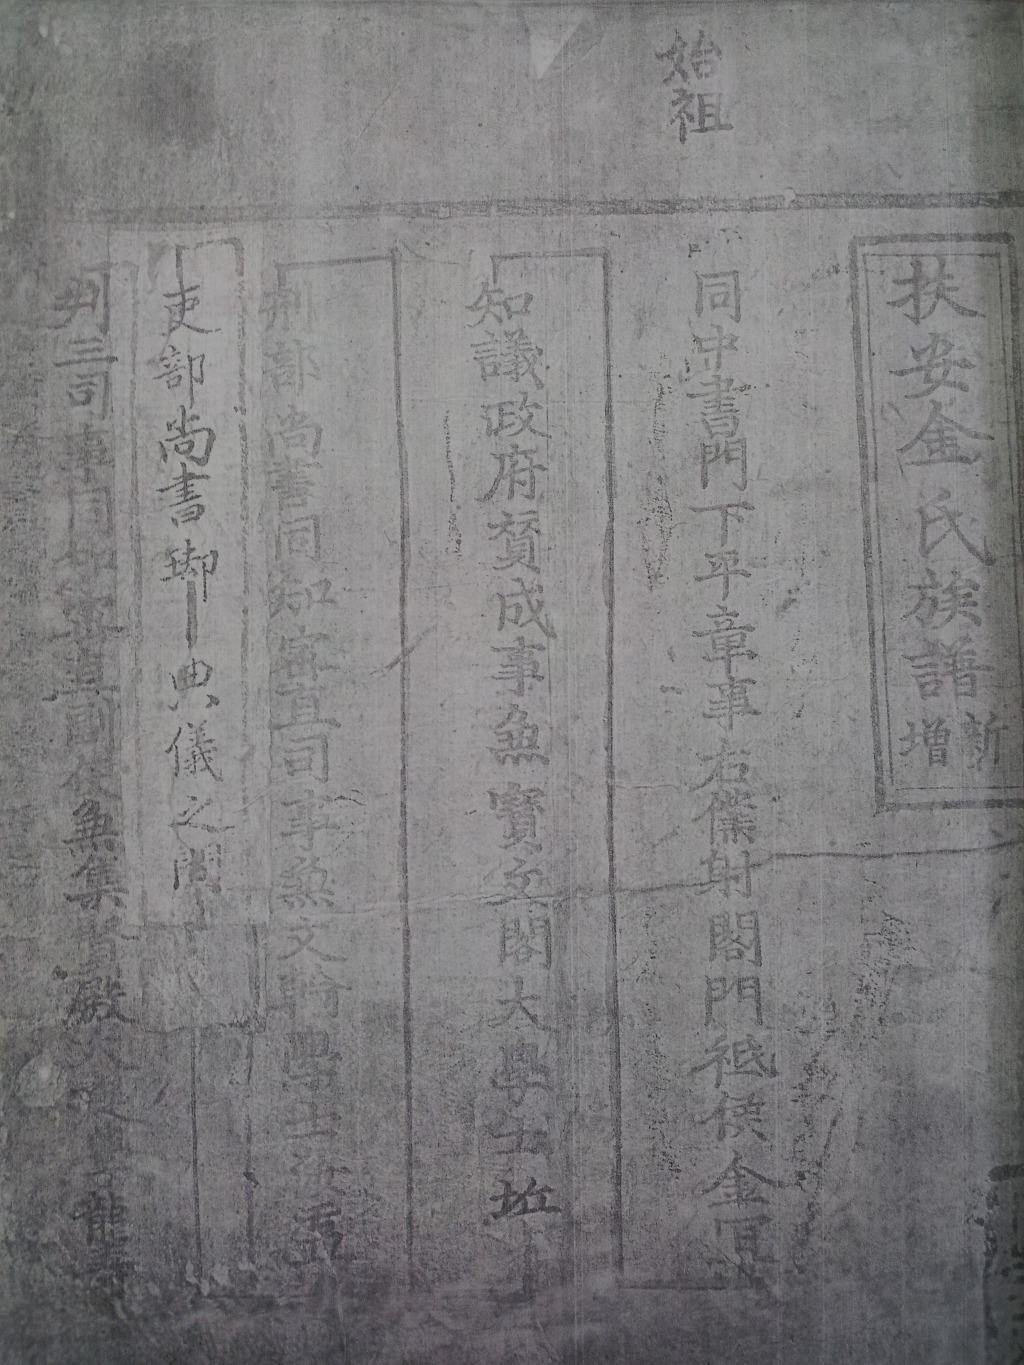 始祖
扶安金氏族譜 新增
同中書門下平章事右僕射閤門祗侯金宜
知議政府賛成事兼寳文閣大學士坵
刑部尚書同知密直司事兼文翰學士汝盂
吏部尚書御典儀之閒
判三司事同知密直副使兼集賢殿